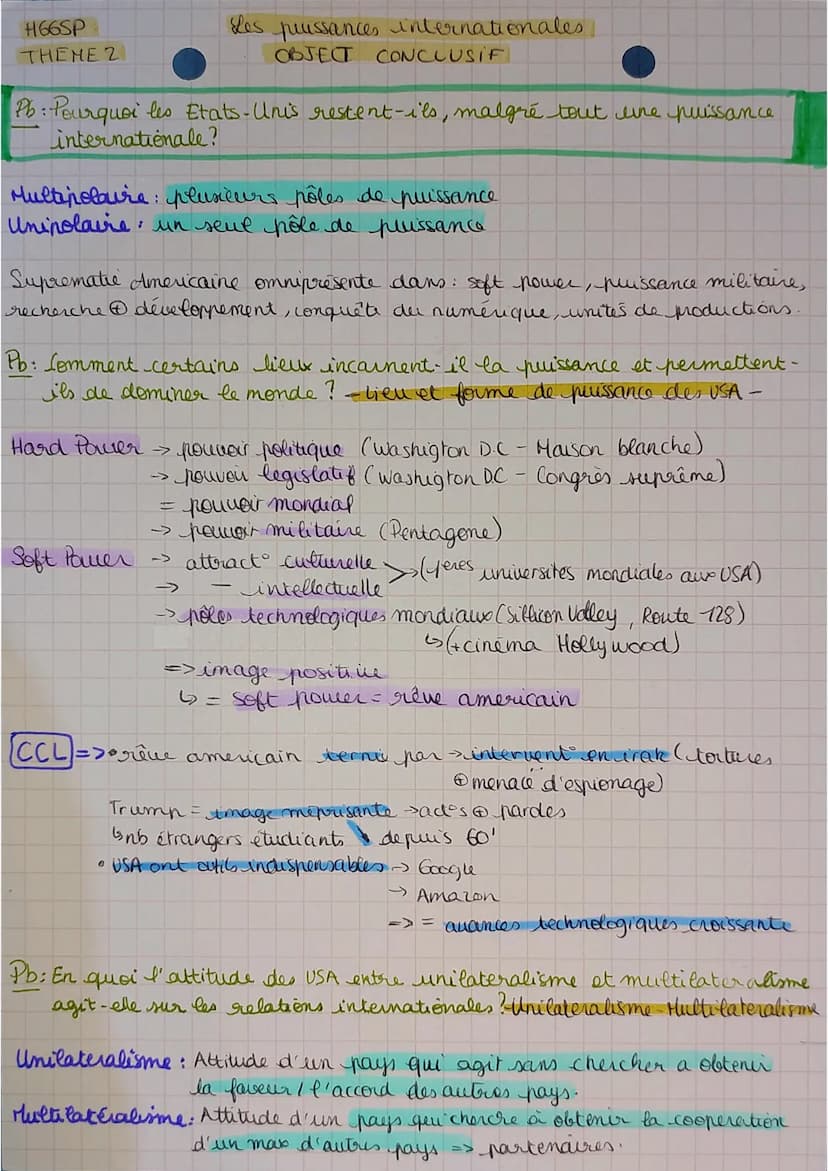 HGGSP
Les puissances internationales
THEME 2
OBJECT CONCLUSIF
Pb: Pourquoi les Etats-Unis restent-ils, malgré tout une puissance
internationale?
Multipolaire: plusieurs pôles de puissance
Unipolaire: un seul pôle de puissance
Suprematie Americaine omniprésente dans: soft power, puissance militaire,
recherche ⊕ développement, conquête du numérique, unités de productions.
Pb: Comment certains lieux incarnent-il la puissance et permettent-
ils de dominer le monde? - Lieu et forme de puissance des USA -
Hard Power → pouvoir politique (Washigton D.C - Maison blanche)
→ pouvoir legislatif (Washigton DC - Congrès suprême)
= pouvoir mondial
→ pouvoir militaire (Pentagone)
Soft Power → attract° culturelle > (1ères universités mondiales aux USA)
→ — intellectuelle
→ pôles technologiques mondiaux (Sillicon Valley, Route 128)
↳ (+ cinéma Hollywood)
=> image positive
↳ = soft power = rêve americain
CCL => • rêve americain terni par → intervent° en irak (tortures
⊕ menace d'espionage)
Trump = image méprisante → actes ⊕ paroles
↳ nb étrangers étudiants ↘ depuis 60'
• USA ont outils indispensables → Google
→ Amazon
=> = avances technologiques croissante
Pb: En quoi l'attitude des USA entre unilateralisme et multilateralisme
agit-elle sur les relations internationales? - Unilateralisme - Multilateralisme
Unilateralisme: Attitude d'un pays qui agit sans chercher a obtenir
la faveur / l'accord des autres pays.
Multilatéralisme: Attitude d'un pays qui cherche à obtenir la cooperation
d'un max d'autres pays => partenaires.